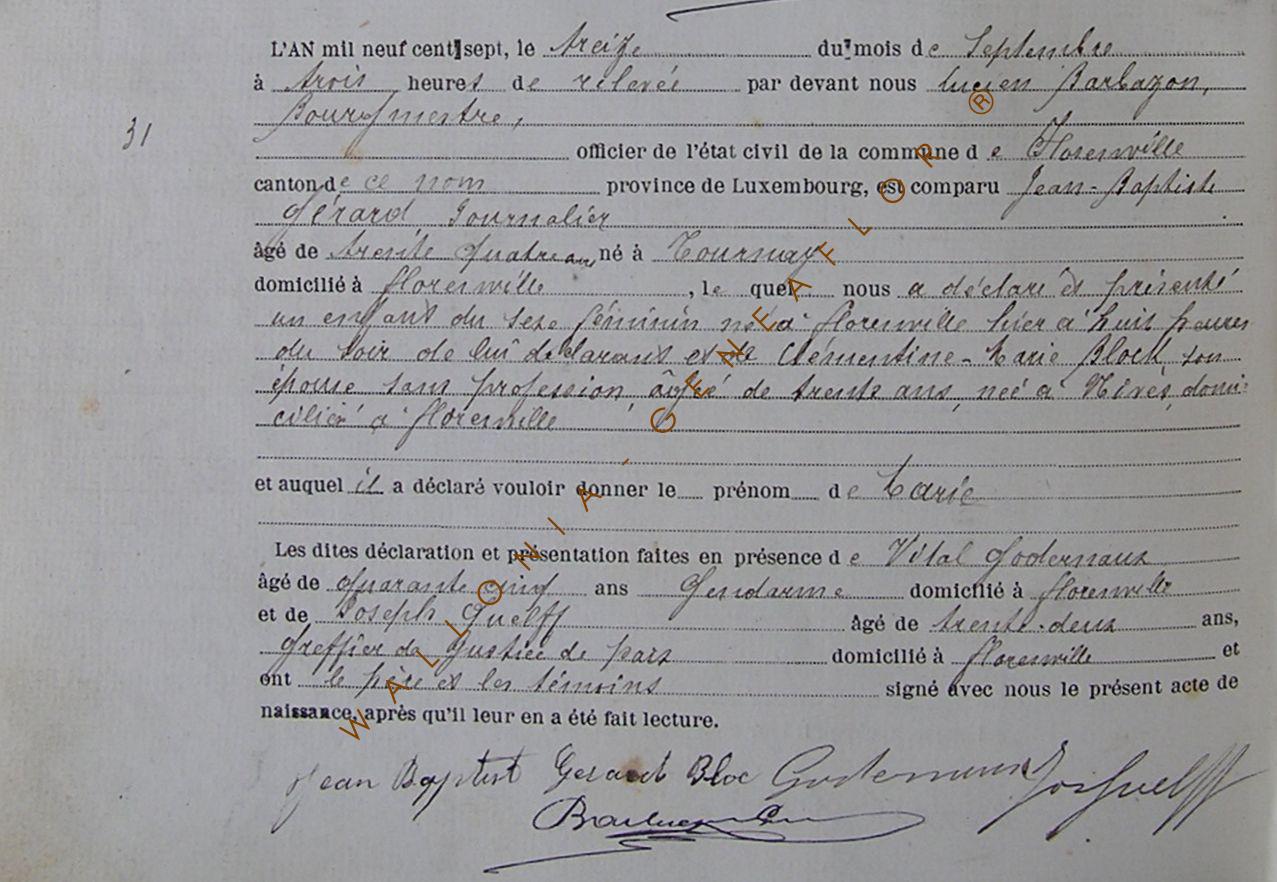 L'AN mil neuf cent sept, le treize du mois de Septembre
à trois heures de relevée par devant nous Lucien Barbazon,
Bourgmestre,
31
officier de l'état civil de la commune de Florenville
canton de ce nom province de Luxembourg, est comparu Jean-Baptiste
Gérard Journalier
âgé de trente quatre ans né à Tournay
domicilié à florenville, le quel nous a déclaré et présenté
un enfant du sexe féminin né à florenville hier à huit heures
du soir de lui déclarant et de Clémentine-Marie Block son
épouse sans profession, âgée de trente ans, née à domi-
cilier à florenville
et auquel il a déclaré vouloir donner le prénom de Marie
Les dites déclaration et présentation faites en présence de Vital Godernaux
âgé de quarante cinq ans Gendarme domicilié à florenville
et de Joseph Guelff âgé de trente-deux ans,
Greffier de Justice de paix domicilié à florenville et
ont le père et les témoins signé avec nous le présent acte de
naissance, après qu'il leur en a été fait lecture.
Jean Baptist Gerard Bloc Godernaux Jos Guelff
WALLONIA - GENEAFLOR ®